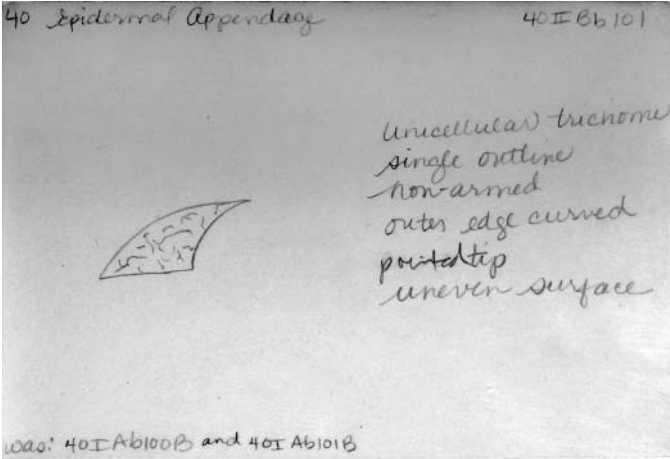 40 Epidermal Appendage
40IIBb101
Unicellular trichome
single outline
non-armed
outer edge curved
pointed tip
uneven surface
was: 40IAb100B and 40IAb101B